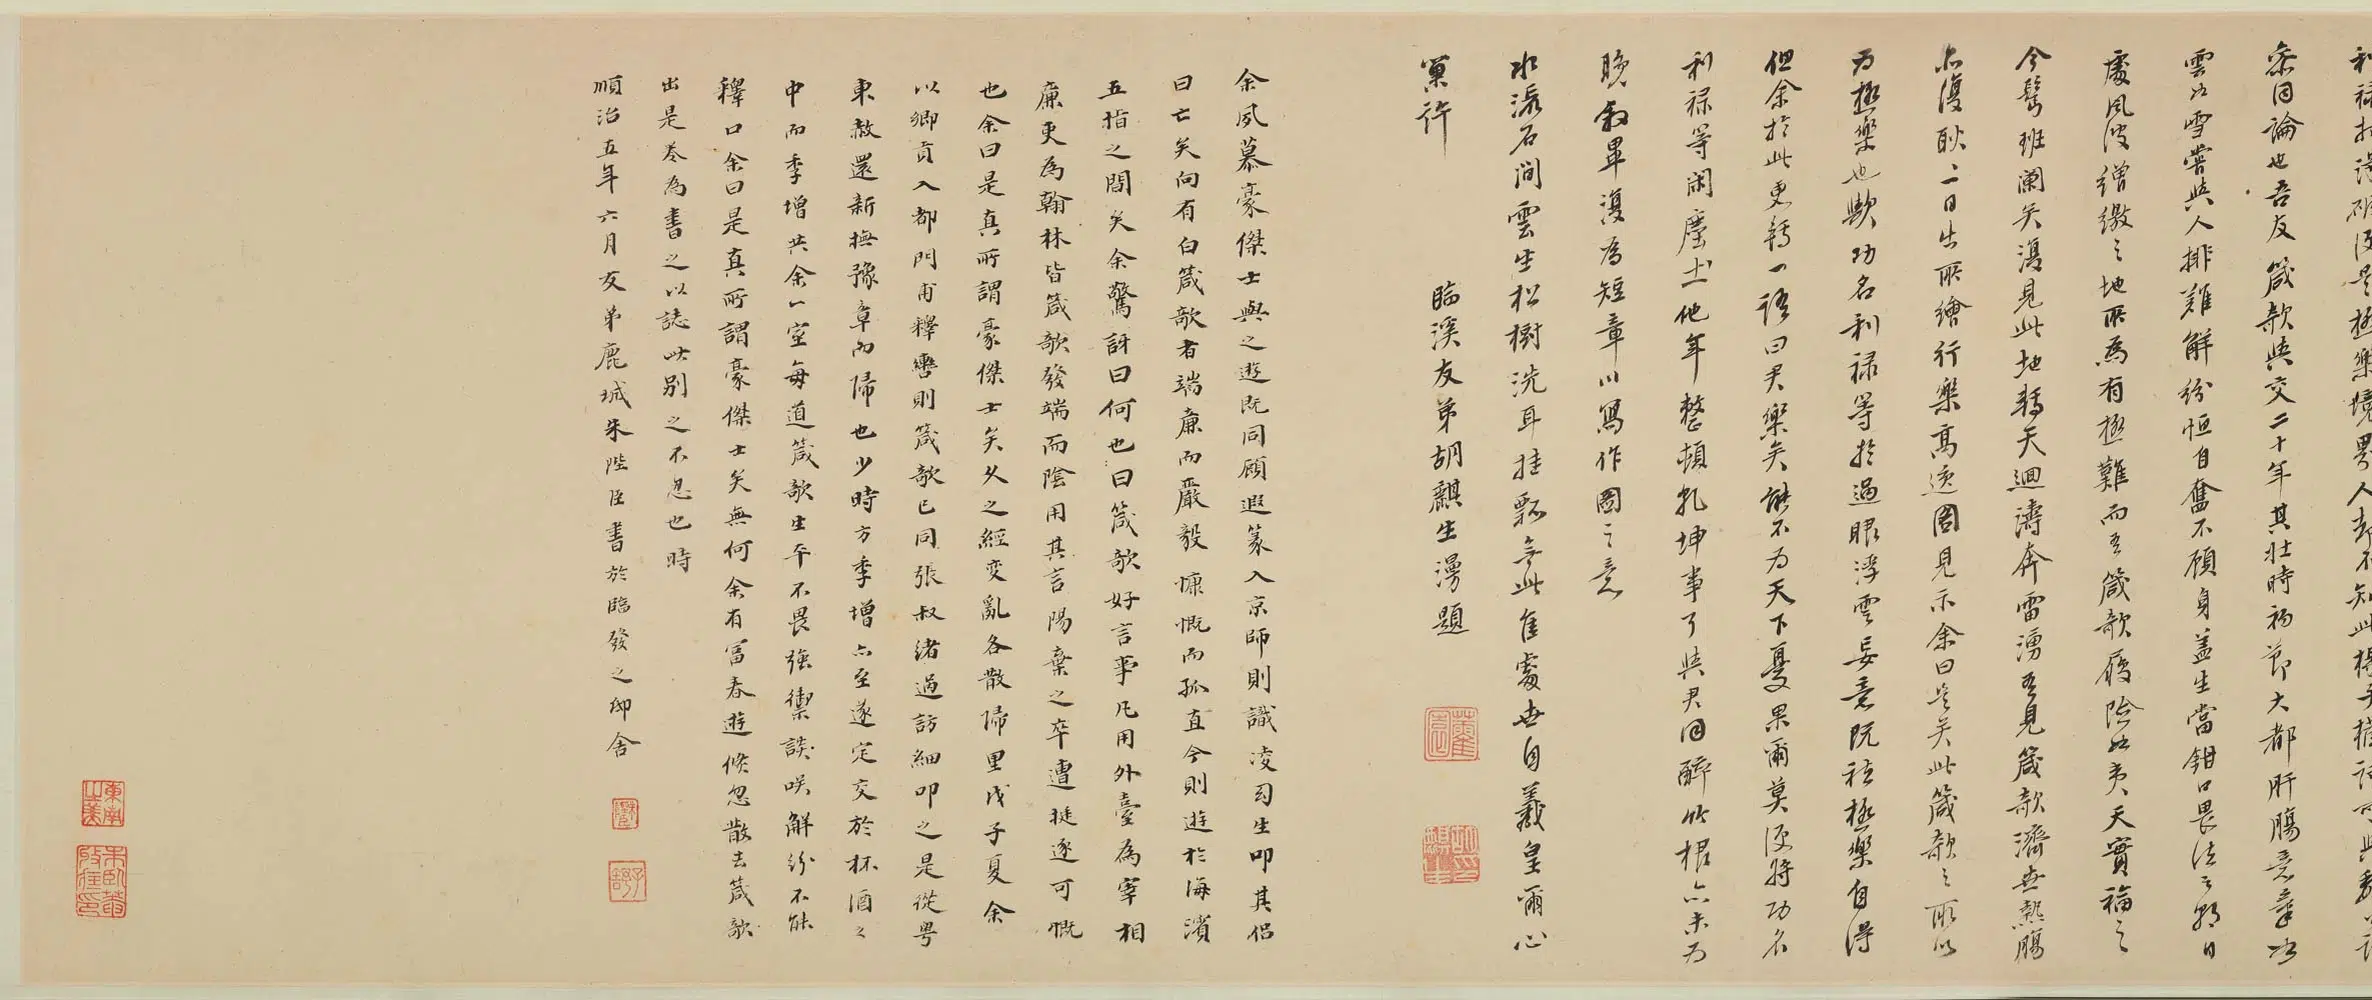 忝同論也吾友箴欹與交二十年其壯時初節大都肝腸意氣
雲以雪嘗與人排難解紛恒自奮不顧身蓋生當鉗口畏法之朝日
處風波矰繳之地所為有極難而吾箴欹履險如夷天實福之
今髩班闌矣復見此地轉天迴濤奔雷湧吾見箴欹濟世熱腸
亦復耿二日出所繪行樂高逸圖見示余曰是矣此箴欹之所以
為極樂也歟功名利祿等於過眼浮雲妄意既祛極樂自得
但余於此更轉一語曰君樂矣能不為天下憂果爾莫便將功名
利祿等閑塵土他年整頓乾坤事了與君同醉竹根亦未為
晚敘畢復為短章以寫作圖之意
水瀠石澗雲生松樹洗耳挂瓢無此隹處世自羲皇爾心
巢許
臨溪友弟胡麒生漫題
余夙慕豪傑士與之遊既同顧遐篆入京師則識凌司生叩其侶
曰亡矣向有白箴欹者端廉而嚴毅慷慨而孤直今則遊於海濱
五指之間矣余驚訝曰何也曰箴欹好言事凡用外臺為宰相
廉吏為翰林皆箴欹發端而陰用其言陽棄之卒遭挺逐可慨
也余曰是真所謂豪傑士矣久之經變亂各散歸里戊子夏余
以鄉貢入都門甫釋轡則箴欹已同張叔緒過訪細叩之是從粤
東赦還新撫豫章而歸也少時方季增亦至遂定交於杯酒之
中而季增共余一室每道箴欹生平不畏強禦談咲解紛不能
釋口余曰是真所謂豪傑士矣無何余有富春遊倏忽散去箴欹
出是卷為書之以誌此別之不忽也時
順治五年六月友弟鹿城朱陛臣書於臨發之邸舍